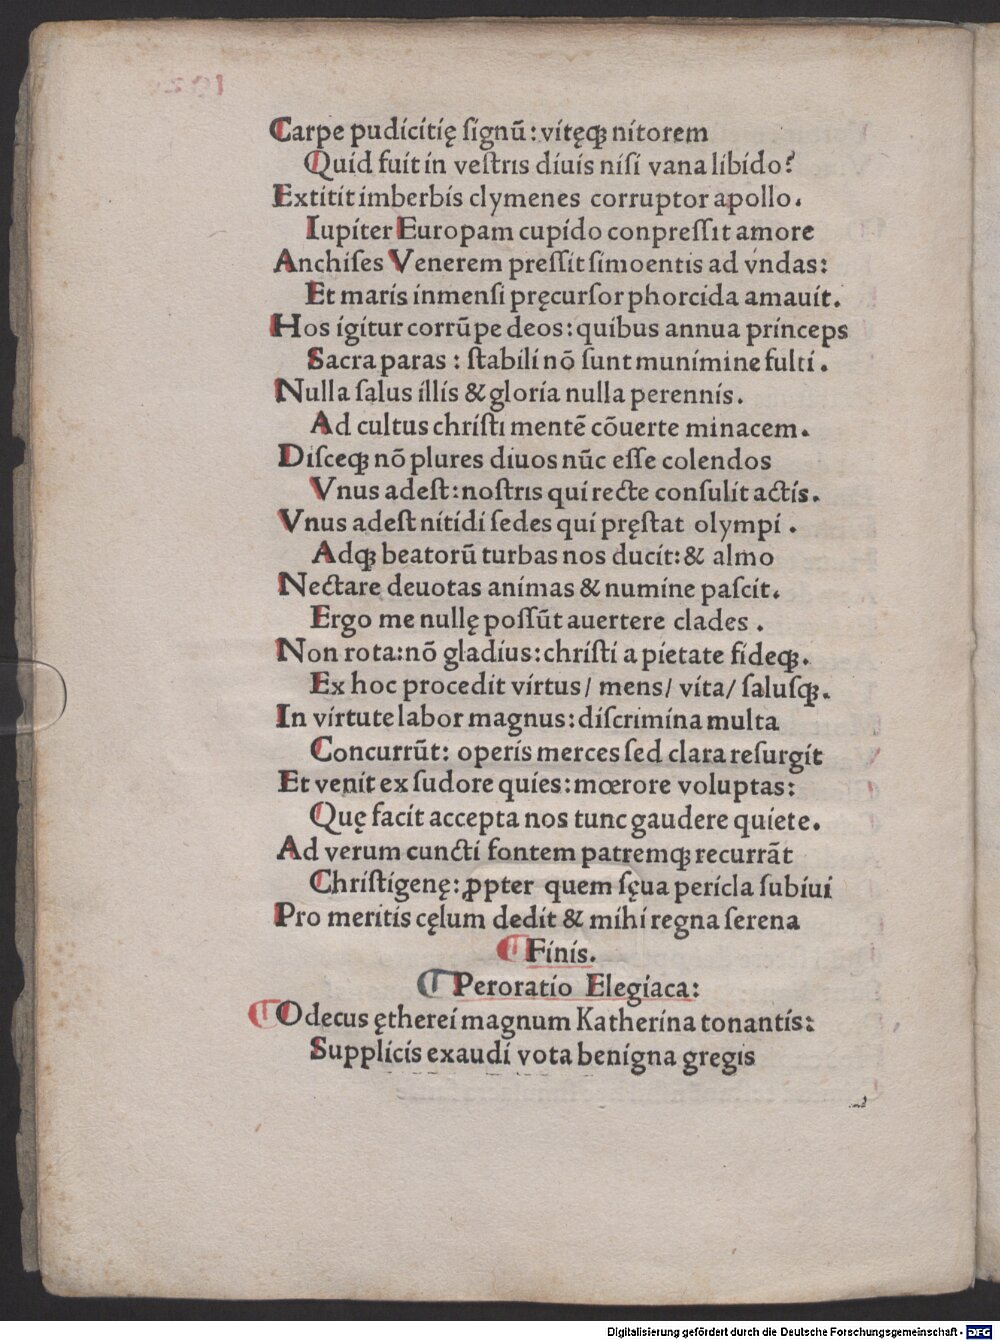 Carpe pudicitię ſignū: vitęqꝫ nitorem
Quid fuit in veſtris diuis niſi vana libido?
Extitit imberbis clymenes corruptor apollo.
Iupiter Europam cupido conpreſſit amore
Anchiſes Venerem preſſit ſimoentis ad vndas:
Et maris inmenſi pręcurſor phorcida amauit.
Hos igitur corrūpe deos: quibus annua princeps
Sacra paras: ſtabili nō ſunt munimine fulti.
Nulla ſalus illis & gloria nulla perennis.
Ad cultus chriſti mentē cōuerte minacem.
Diſceqꝫ nō plures diuos nūc eſſe colendos
Vnus adeſt: noſtris qui recte conſulit actis.
Vnus adeſt nitidi ſedes qui pręſtat olympi.
Adqꝫ beatorū turbas nos ducit: & almo
Nectare deuotas animas & numine paſcit.
Ergo me nullę poſſūt auertere clades.
Non rota: nō gladius: chriſti a pietate fideqꝫ.
Ex hoc procedit virtus/ mens/ vita/ ſaluſqꝫ.
In virtute labor magnus: diſcrimina multa
Concurrūt: operis merces ſed clara reſurgit
Et venit ex ſudore quies: mœrore voluptas:
Quę facit accepta nos tunc gaudere quiete.
Ad verum cuncti fontem patremqꝫ recurrāt
Chriſtigenę: ꝓpter quem ſęua pericla ſubiui
Pro meritis cęlum dedit & mihi regna ſerena
⸿ Finis.
⸿ Peroratio Elegiaca:
⸿ O decus ętherei magnum Katherina tonantis:
Supplicis exaudi vota benigna gregis
Digitalisierung gefördert durch die Deutsche Forschungsgemeinschaft - DFG